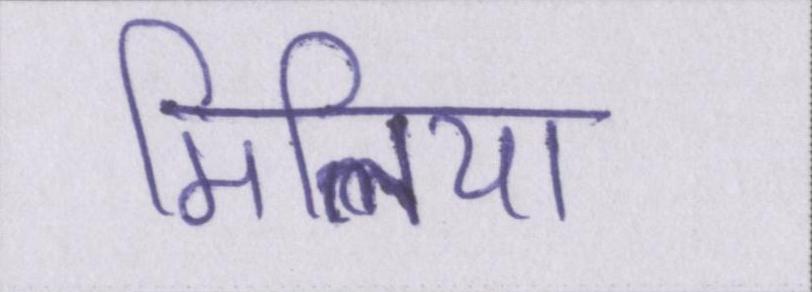 मिलिया